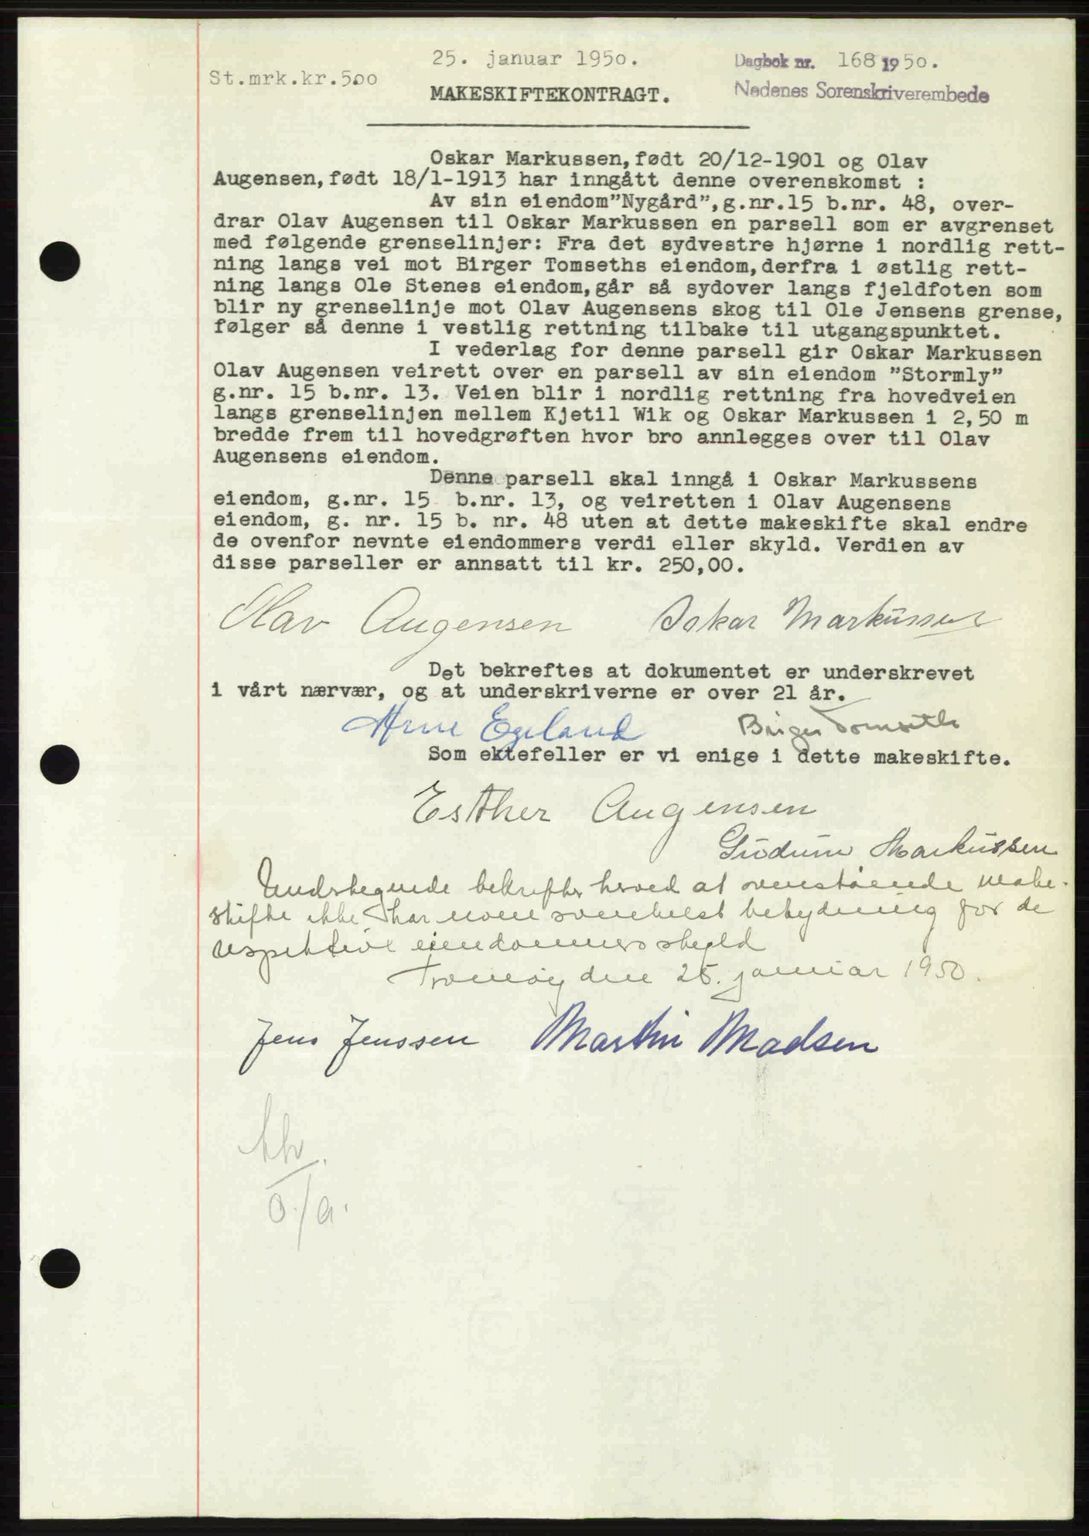 25. januar 1950.
Dagbok nr. 168 1950.
St.mrk.kr.5.00
Nedenes Sorenskriverembede
MAKESKIFTEKONTRAGT.
Oskar Markussen,født 20/12-1901 og Olav
Augensen,født 18/1-1913 har inngått denne overenskomst :
Av sin eiendom"Nygård",g.nr.15 b.nr. 48, over-
drar Olav Augensen til Oskar Markussen en parsell som er avgrenset
med følgende grenselinjer: Fra det sydvestre hjørne i nordlig rett-
ning langs vei mot Birger Tomseths eiendom,derfra i østlig rett-
ning langs Ole Stenes eiendom,går så sydover langs fjeldfoten som
blir ny grenselinje mot Olav Augensens skog til Ole Jensens grense,
følger så denne i vestlig rettning tilbake til utgangspunktet.
I vederlag for denne parsell gir Oskar Markussen
Olav Augensen veirett over en parsell av sin eiendom "Stormly"
g.nr. 15 b.nr. 13. Veien blir i nordlig rettning fra hovedveien
langs grenselinjen mellem Kjetil Wik og Oskar Markussen i 2,50 m
bredde frem til hovedgrøften hvor bro annlegges over til Olav
Augensens eiendom.
Denne parsell skal inngå i Oskar Markussens
eiendom, g.nr. 15 b.nr. 13, og veiretten i Olav Augensens
eiendom, g. nr. 15 b. nr. 48 uten at dette makeskifte skal endre
de ovenfor nevnte eiendommers verdi eller skyld. Verdien av
disse parseller er annsatt til kr. 250,00.
Olav Augensen Oskar Markussen
Det bekreftes at dokumentet er underskrevet
i vårt nærvær, og at underskriverne er over 21 år.
Arne Egeland Birger Tomseth
Som ektefeller er vi enige i dette makeskifte.
Esther Augensen
Gudrun Markussen
Undertegnede bekrefter herved at ovenstående make-
skifte ikke har noen somhelst betydning for de
respektive eiendommers skyld
Tromøy den 25. januar 1950.
Jens Jenssen Martin Madsen